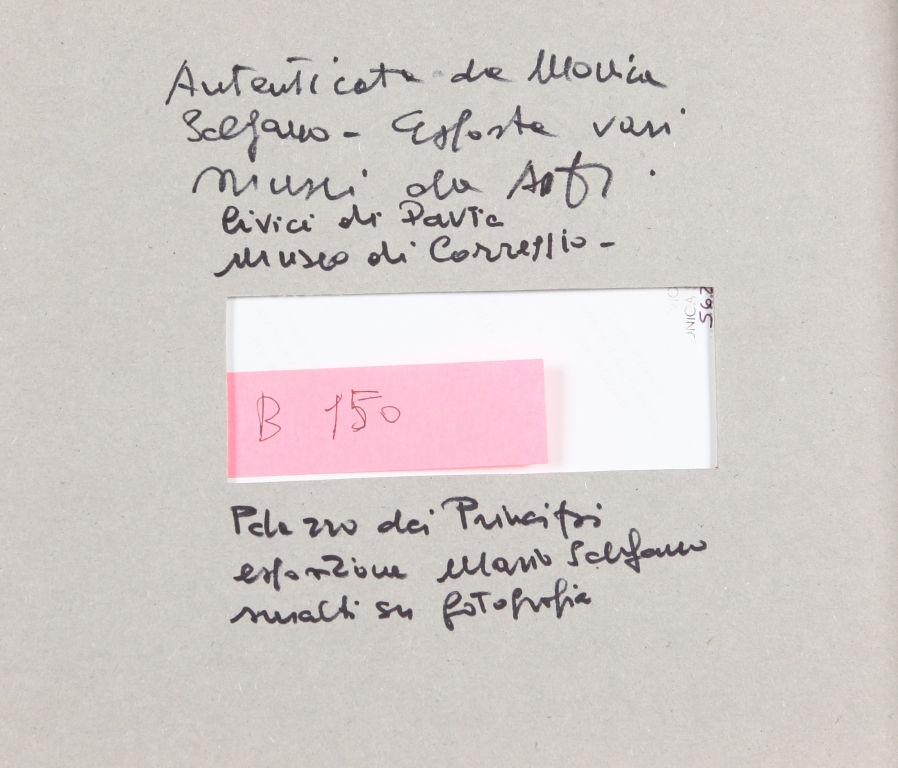 Autenticata da Monica
Schifano - Esposta vari
Musei da
Civici di Pavia
Museo di Correggio -
562
UNICA
B 150
Palazzo dei Principi
esposizione Mario Schifano
smalti su fotografia